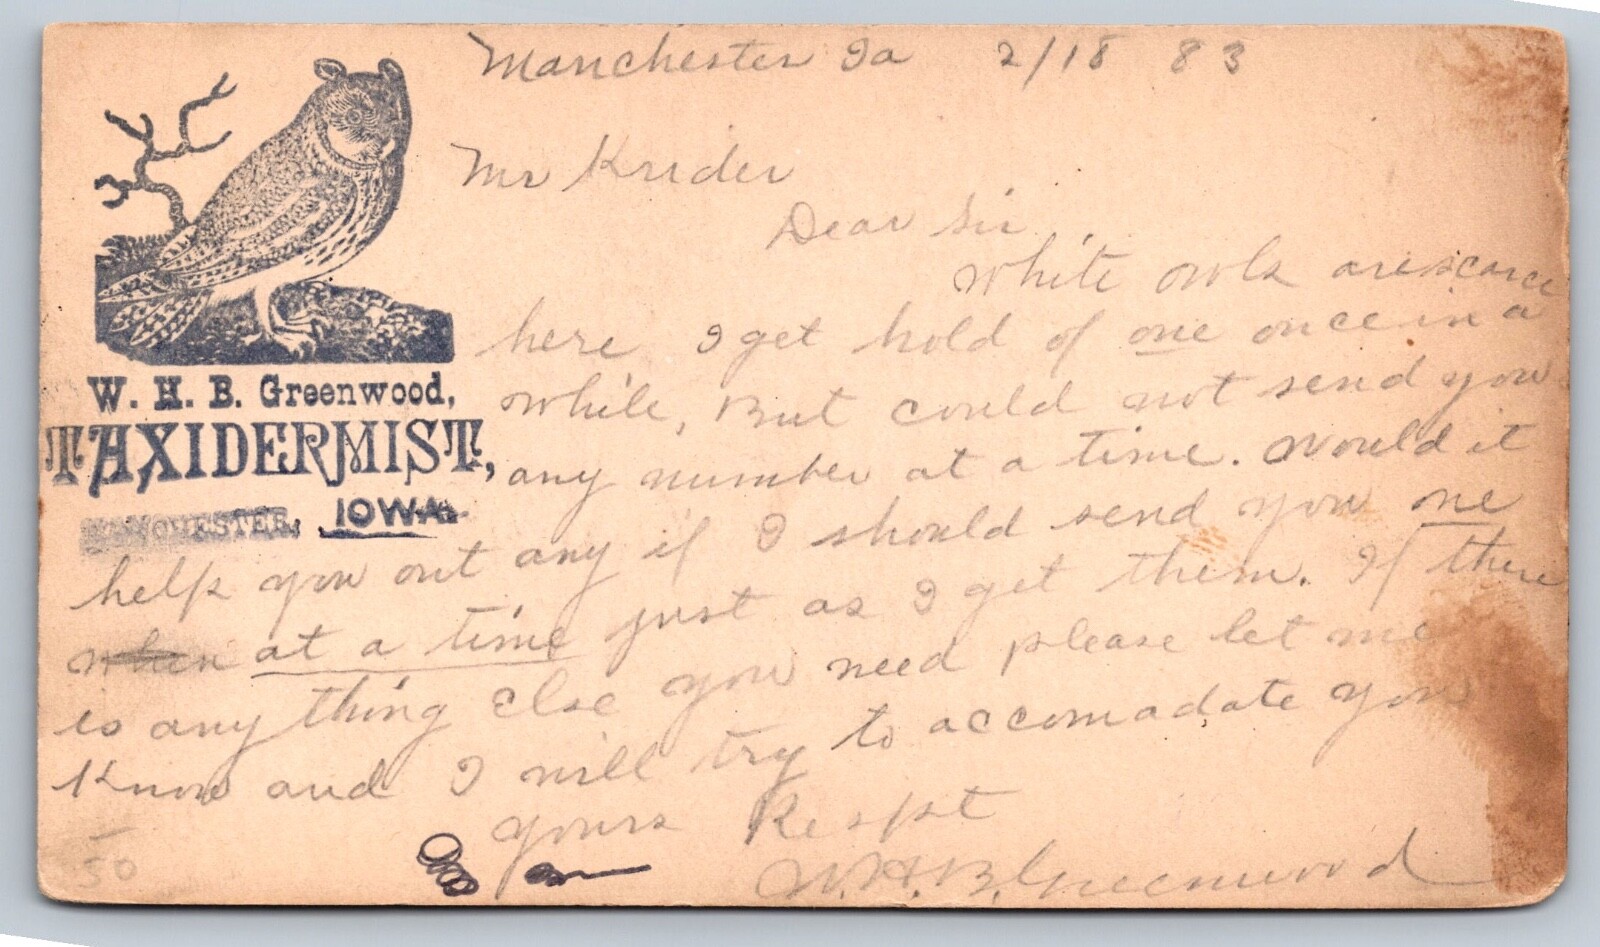 Manchester Ia 2/18 83
Mr Krider
Dear Sir
White owls are scarce
here I get hold of one once in a
while, But could not send you
any number at a time. Would it
help you out any if I should send you one
when at a time just as I get them. If there
is any thing else you need please let me
Know and I will try to accomadate you
yours Respt
W.H.B. Greenwood
W. H. B. Greenwood,
TAXIDERMIST,
MANCHESTER, IOWA.
50